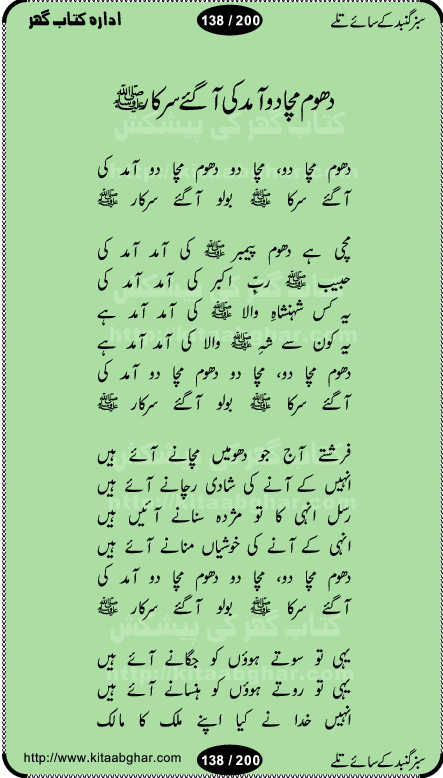 سبز گنبد کے سائے تلے 138 / 200 ادارہ کتاب گھر
دھوم مچا دو آمد کی آ گئے سرکار ﷺ
دھوم مچا دو، مچا دو دھوم مچا دو آمد کی
آ گئے سرکا ﷺ بولو آ گئے سرکار ﷺ
مچی ہے دھوم پیمبر ﷺ کی آمد آمد کی
حبیب ﷺ ربِّ اکبر کی آمد آمد کی
یہ کس شہنشاہِ والا ﷺ کی آمد آمد ہے
یہ کون سے شہِ ﷺ والا کی آمد آمد ہے
دھوم مچا دو، مچا دو دھوم مچا دو آمد کی
آ گئے سرکا ﷺ بولو آ گئے سرکار ﷺ
فرشتے آج جو دھومیں مچانے آئے ہیں
انہیں کے آنے کی شادی رچانے آئے ہیں
رسل انہی کا تو مژدہ سنانے آئیں ہیں
انہی کے آنے کی خوشیاں منانے آئے ہیں
دھوم مچا دو، مچا دو دھوم مچا دو آمد کی
آ گئے سرکا ﷺ بولو آ گئے سرکار ﷺ
یہی تو سوتے ہوؤں کو جگانے آئے ہیں
یہی تو روتے ہوؤں کو ہنسانے آئے ہیں
انہیں خدا نے کیا اپنے ملک کا مالک
سبز گنبد کے سائے تلے 138 / 200 http://www.kitaabghar.com
کتاب گھر کی پیشکش
http://kitaabghar.com